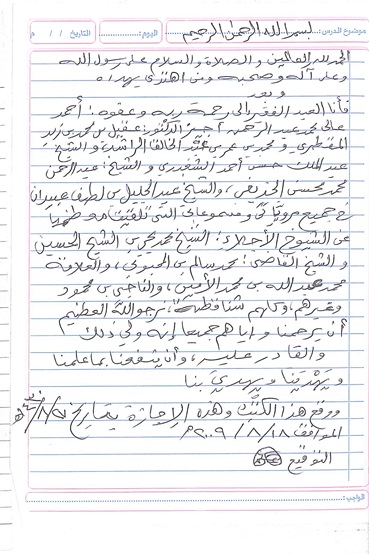 موضوع الدرس: بسم الله الرحمن الرحيم اليوم: التاريخ / / م
الحمد لله رب العالمين والصلاة والسلام على رسول الله
وعلى آله وصحبه ومن اهتدى بهداه
وبعد
فأنا العبد الفقير إلى رحمة ربه وعفوه: أحمد
محمد عبد الرحمن أجيز الدكتور: عقيل بن محمد بن زيد
المقطري، ومحمد بن عمر بن والشيخ
عبد الملك حسن أحمد والشيخ: عبد الرحمن
محمد محسن والشيخ عبد الجليل بن لطف
جميع مروياتي ومسموعاتي التي تلقيت
عن الشيوخ الأجلاء: الشيخ محمد يحيى بن الشيخ الحسين
والشيخ القاضي: محمد سالم بن والعلامة
محمد عبد الله بن محمد الأمين، والقاضي بن محمود
وغيرهم، وكلهم شناقطة، نرجو الله العظيم
أن يرحمنا وإياهم جميعا إنه ولي ذلك
والقادر عليه، وأن ينفعنا بما علمنا
ويهدينا ويهدي بنا
ووقع هذا وهذه الإجازة بتاريخ
الموافق ١٨ / ٨ / ٢٠٠٩م
التوقيع
الواجب: